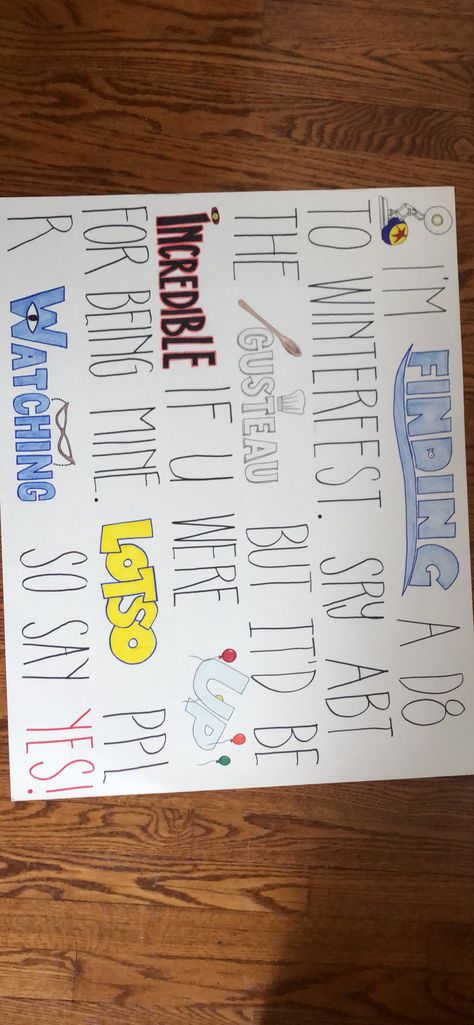 I'M FINDING A D8
TO WINTERFEST. SRY ABT
THE GUSTEAU BUT IT'D BE
INCREDIBLE IF U WERE UP
FOR BEING MINE. LOTSO PPL
R WATCHING SO SAY YES!